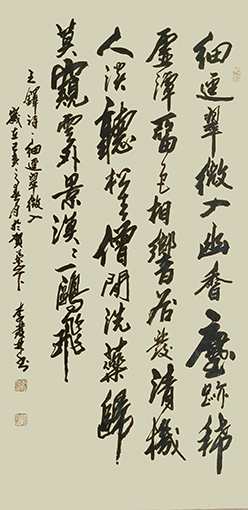 细逕翠微入幽香塵跡稀
虛潭留色相響發清機
人淡聽松去僧閒洗藥歸
莫窺雲外景漠〻一鷗飛
王鐸詩·细逕翠微入
歲在己亥之春月於賀蘭山下 李書